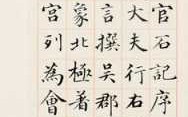 官石記序
大夫行右
言撰吳郡
象北極着
宮列為會